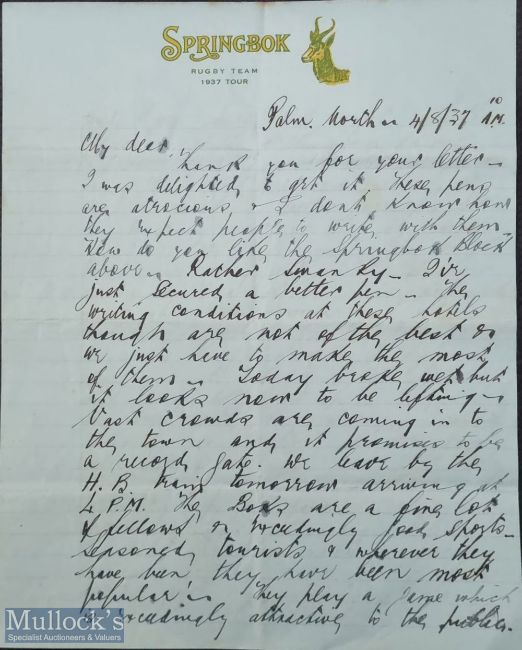 SPRINGBOK
RUGBY TEAM
1937 TOUR
Palm. North 4/8/37 10 A.M.
My dear
Thank you for your letter -
I was delighted to get it. These pens
are atrocious & I dont know how
they expect people to write with them -
How do you like the Springbok Block
above - Rather Swanky - I've
just secured a better pen - The
writing conditions at these hotels
though are not of the best &
we just have to make the most
of them - Today broke wet but
it looks now to be lifting -
Vast crowds are coming in to
the town and it promises to be
a record gate. We leave by the
H.B. train tomorrow arriving at
4 P.M. The Boks are a fine lot
of fellows & exceedingly good sports -
seasoned tourists & wherever they
have been they have been most
popular. They play a game which
is exceedingly attractive to the public.
Mullock's
Specialist Auctioneers & Valuers